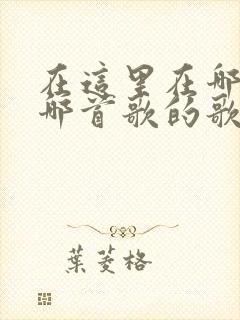 在這里在那
那首歌的歌
葉菱格